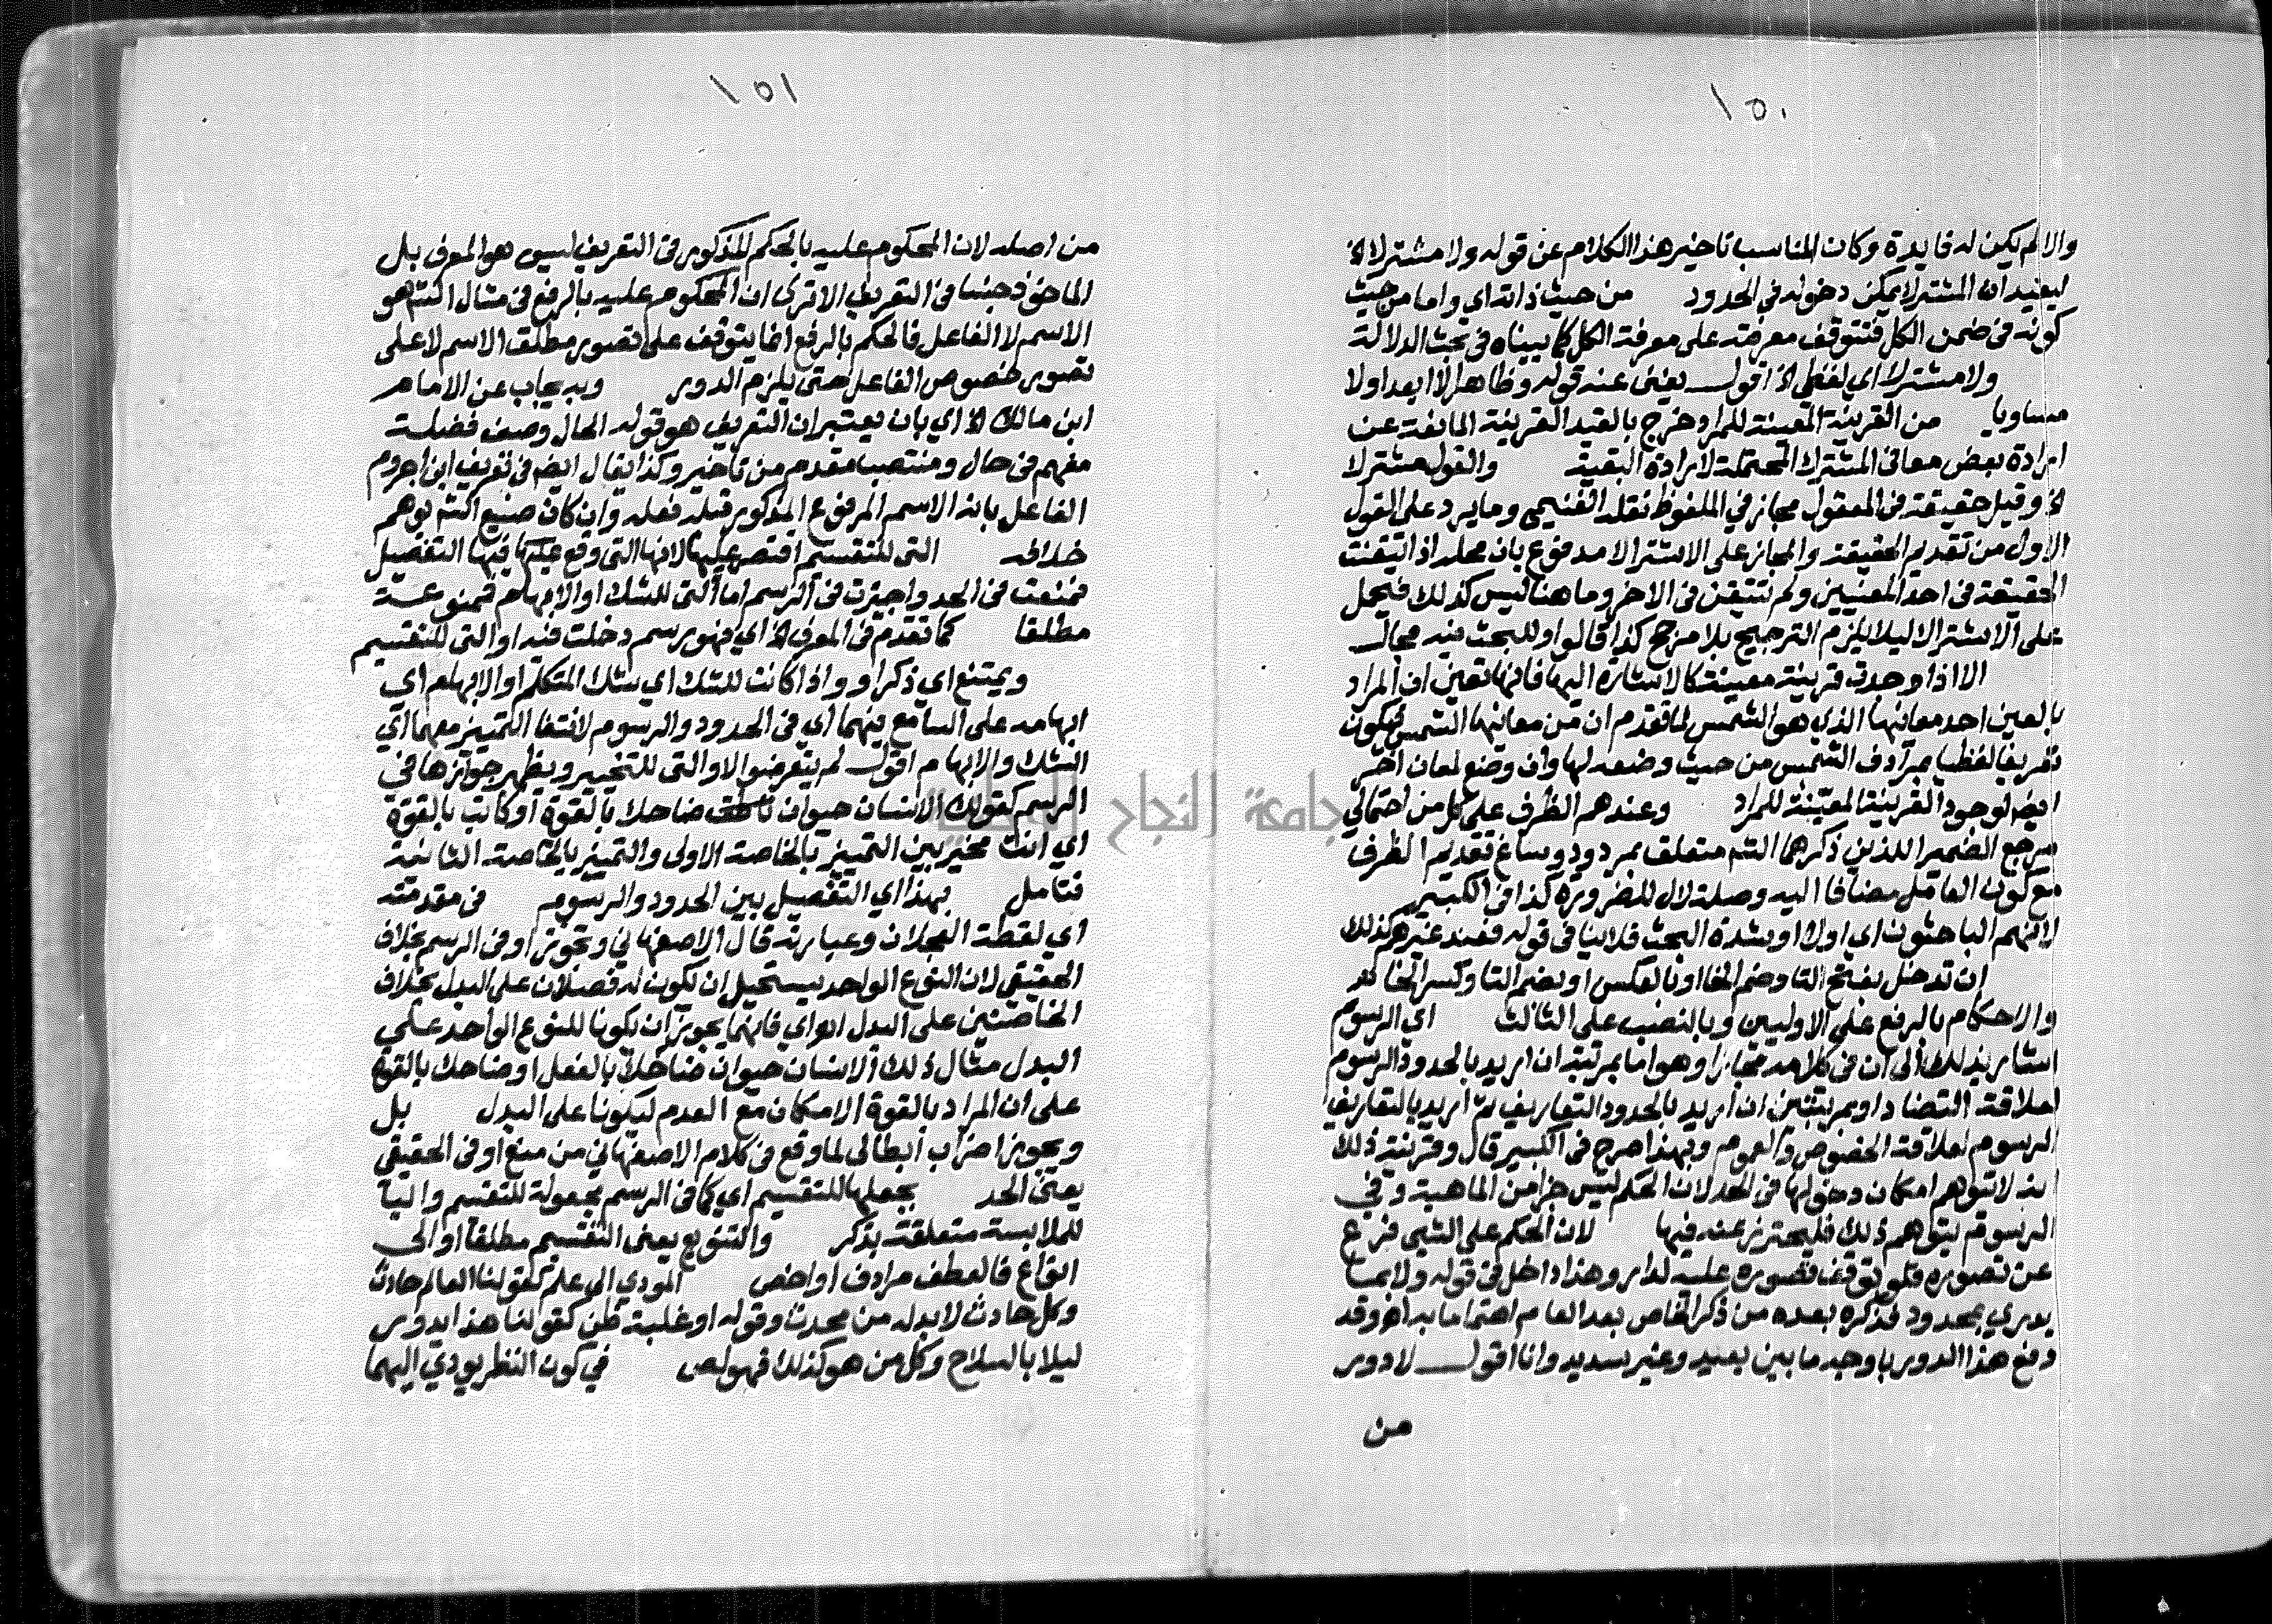 ١٥٠
والا لم يكن له فايدة وكان المناسب تاخير هذا الكلام عن قوله ولا مشتركا الخ
ليفيد ان المشترك لا يمكن دخوله في الحدود من حيث ذاته اي واما من حيث
كونه في ضمن الكل فتتوقف معرفته على معرفة الكل كما بيناه في بحث الدلالة
ولا مشتركا اي لفظي الخ اقول يغني عنه قوله وظاهرا لا ابعد اولا
مساويا من القرينة المعينة للمراد خرج بالقيد القرينة المانعة عن
ارادة بعض معاني المشترك المحتملة لارادة البقية والقول مشترك
الخ وقيل حقيقة في المعقول مجاز في الملفوظ نقله الغنيمي وما يرد على القول
الاول من تقديم الحقيقة والمجاز على الاشتراك مدفوع بان محله اذا تيقنت
الحقيقة في احد المعنيين ولم تتيقن في الاخر وما هنا ليس كذلك فيحمل
على الاشتراك ليلا يلزم الترجيح بلا مرجح كذا قالوا وللبحث فيه مجال
الا اذا وجدت قرينة معينة كالاشارة اليها فانها تعين ان المراد
بالعين احد معانيها الذي هو الشمس لما تقدم ان من معانيها الشمس فيكون
تعريفا لفظيا بمرادف الشمس من حيث وضعه لها وان وضع لمعان اخر
ايضا لوجود القرينة المعينة للمراد وعندهم الظرف على كل من احتمالي
مرجع الضمير اللذين ذكرهما الشم متعلق بمردود وساغ تقديم الظرف
مع كون العامل مضافا اليه وصلة لال للضرورة كذا في الكبير
لانهم الباحثون اي اولا او بشدة البحث فلا ينافي قوله فعند غيرهم كذلك
ان تدخل بفتح التا وضم الخا او بالعكس او بضم التا وكسر الخا
والاحكام بالرفع على الاوليين وبالنصب على الثالث اي الرسوم
اشار بذلك الى ان في كلامه مجازا وهو اما بمرتبة ان اريد بالحدود الرسوم
لعلاقة التضاد او بمرتبتين ان اريد بالحدود التعاريف ثم اريد بالتعاريف
الرسوم لعلاقة الخصوص والعموم وبهذا صرح في الكبير قال وقرينة ذلك
انه لا يتوهم امكان دخولها في الحد لان الحكم ليس جزا من الماهية وفي
الرسوم قد يتوهم ذلك فليحترز عنه فيها لان الحكم على الشي فرع
عن تصوره فلو توقف تصوره عليه لدار وهذا داخل في قوله ولا بما
يدري بمحدود فذكره بعده من ذكر الخاص بعد العام اهتماما به اهـ وقد
دفع هذا الدور باوجه ما بين بعيد وغير سديد وانا اقول لا دور
من
١٥١
من اصله لان المحكوم عليه بالحكم المذكور في التعريف ليس هو المعرف بل
الماخوذ جنسا في التعريف الا ترى ان المحكوم عليه بالرفع في مثال الشم هو
الاسم لا الفاعل فالحكم بالرفع انما يتوقف على تصور مطلق الاسم لا على
تصور خصوص الفاعل حتى يلزم الدور وبه يجاب عن الامام
ابن مالك الخ اي بان يعتبر ان التعريف هو قوله الحال وصف فضلة
مفهم في حال ومنتصب مقدم من تاخير وكذا يقال ايضا في تعريف ابن اجروم
الفاعل بانه الاسم المرفوع المذكور قبله فعله وان كان صنيع الشم يوهم
خلافه التي للتقسيم اقتصر عليها لانها التي وقع فيها التفصيل
فمنعت في الحد واجيزت في الرسم اما التي للشك او الابهام فممنوعة
مطلقا كما تقدم في المعرف الخ اي فهو رسم دخلت فيه او التي للتقسيم
ويمتنع اي ذكر او واذا كانت للشك اي شك المتكلم او الابهام اي
ابهامه على السامع فيهما اي في الحدود والرسوم لانتفا التمييز معهما اي
الشك والابهام اقول لم يتعرضوا لاو التي للتخيير ويظهر جوازها في
الرسم كقولك الانسان حيوان ناطق ضاحك بالقوة او كاتب بالقوة
اي انت مخير بين التمييز بالخاصة الاولى والتمييز بالخاصة الثانية
فتامل بهذا اي التفصيل بين الحدود والرسوم في مقدمته
اي لقطة العجلان وعبارته قال الاصفهاني وتجوز او في الرسم بخلاف
الحقيقي لان النوع الواحد يستحيل ان يكون له فصلان على البدل بخلاف
الخاصتين على البدل اهـ اي فانهما يجوز ان يكونا للنوع الواحد على
البدل مثال ذلك الانسان حيوان ضاحك بالفعل او ضاحك بالقوة
على ان المراد بالقوة الامكان مع العدم ليكونا على البدل بل
ويجوز اضراب ابطالي لما وقع في كلام الاصفهاني من منع او في الحقيقي
يعني الحد بجعلها للتقسيم اي كما في الرسم مجعولة للتقسيم والبا
للملابسة متعلقة بذكر والتنويع يعني التقسيم مطلقا او الى
انواع فالعطف مرادف او اخص المودي الى علم كقولنا العالم حادث
وكل حادث لابد له من محدث وقوله او غلبة ظن كقولنا هذا يدور
ليلا بالسلاح وكل من هو كذلك فهو لص في كون النظر يودي اليهما